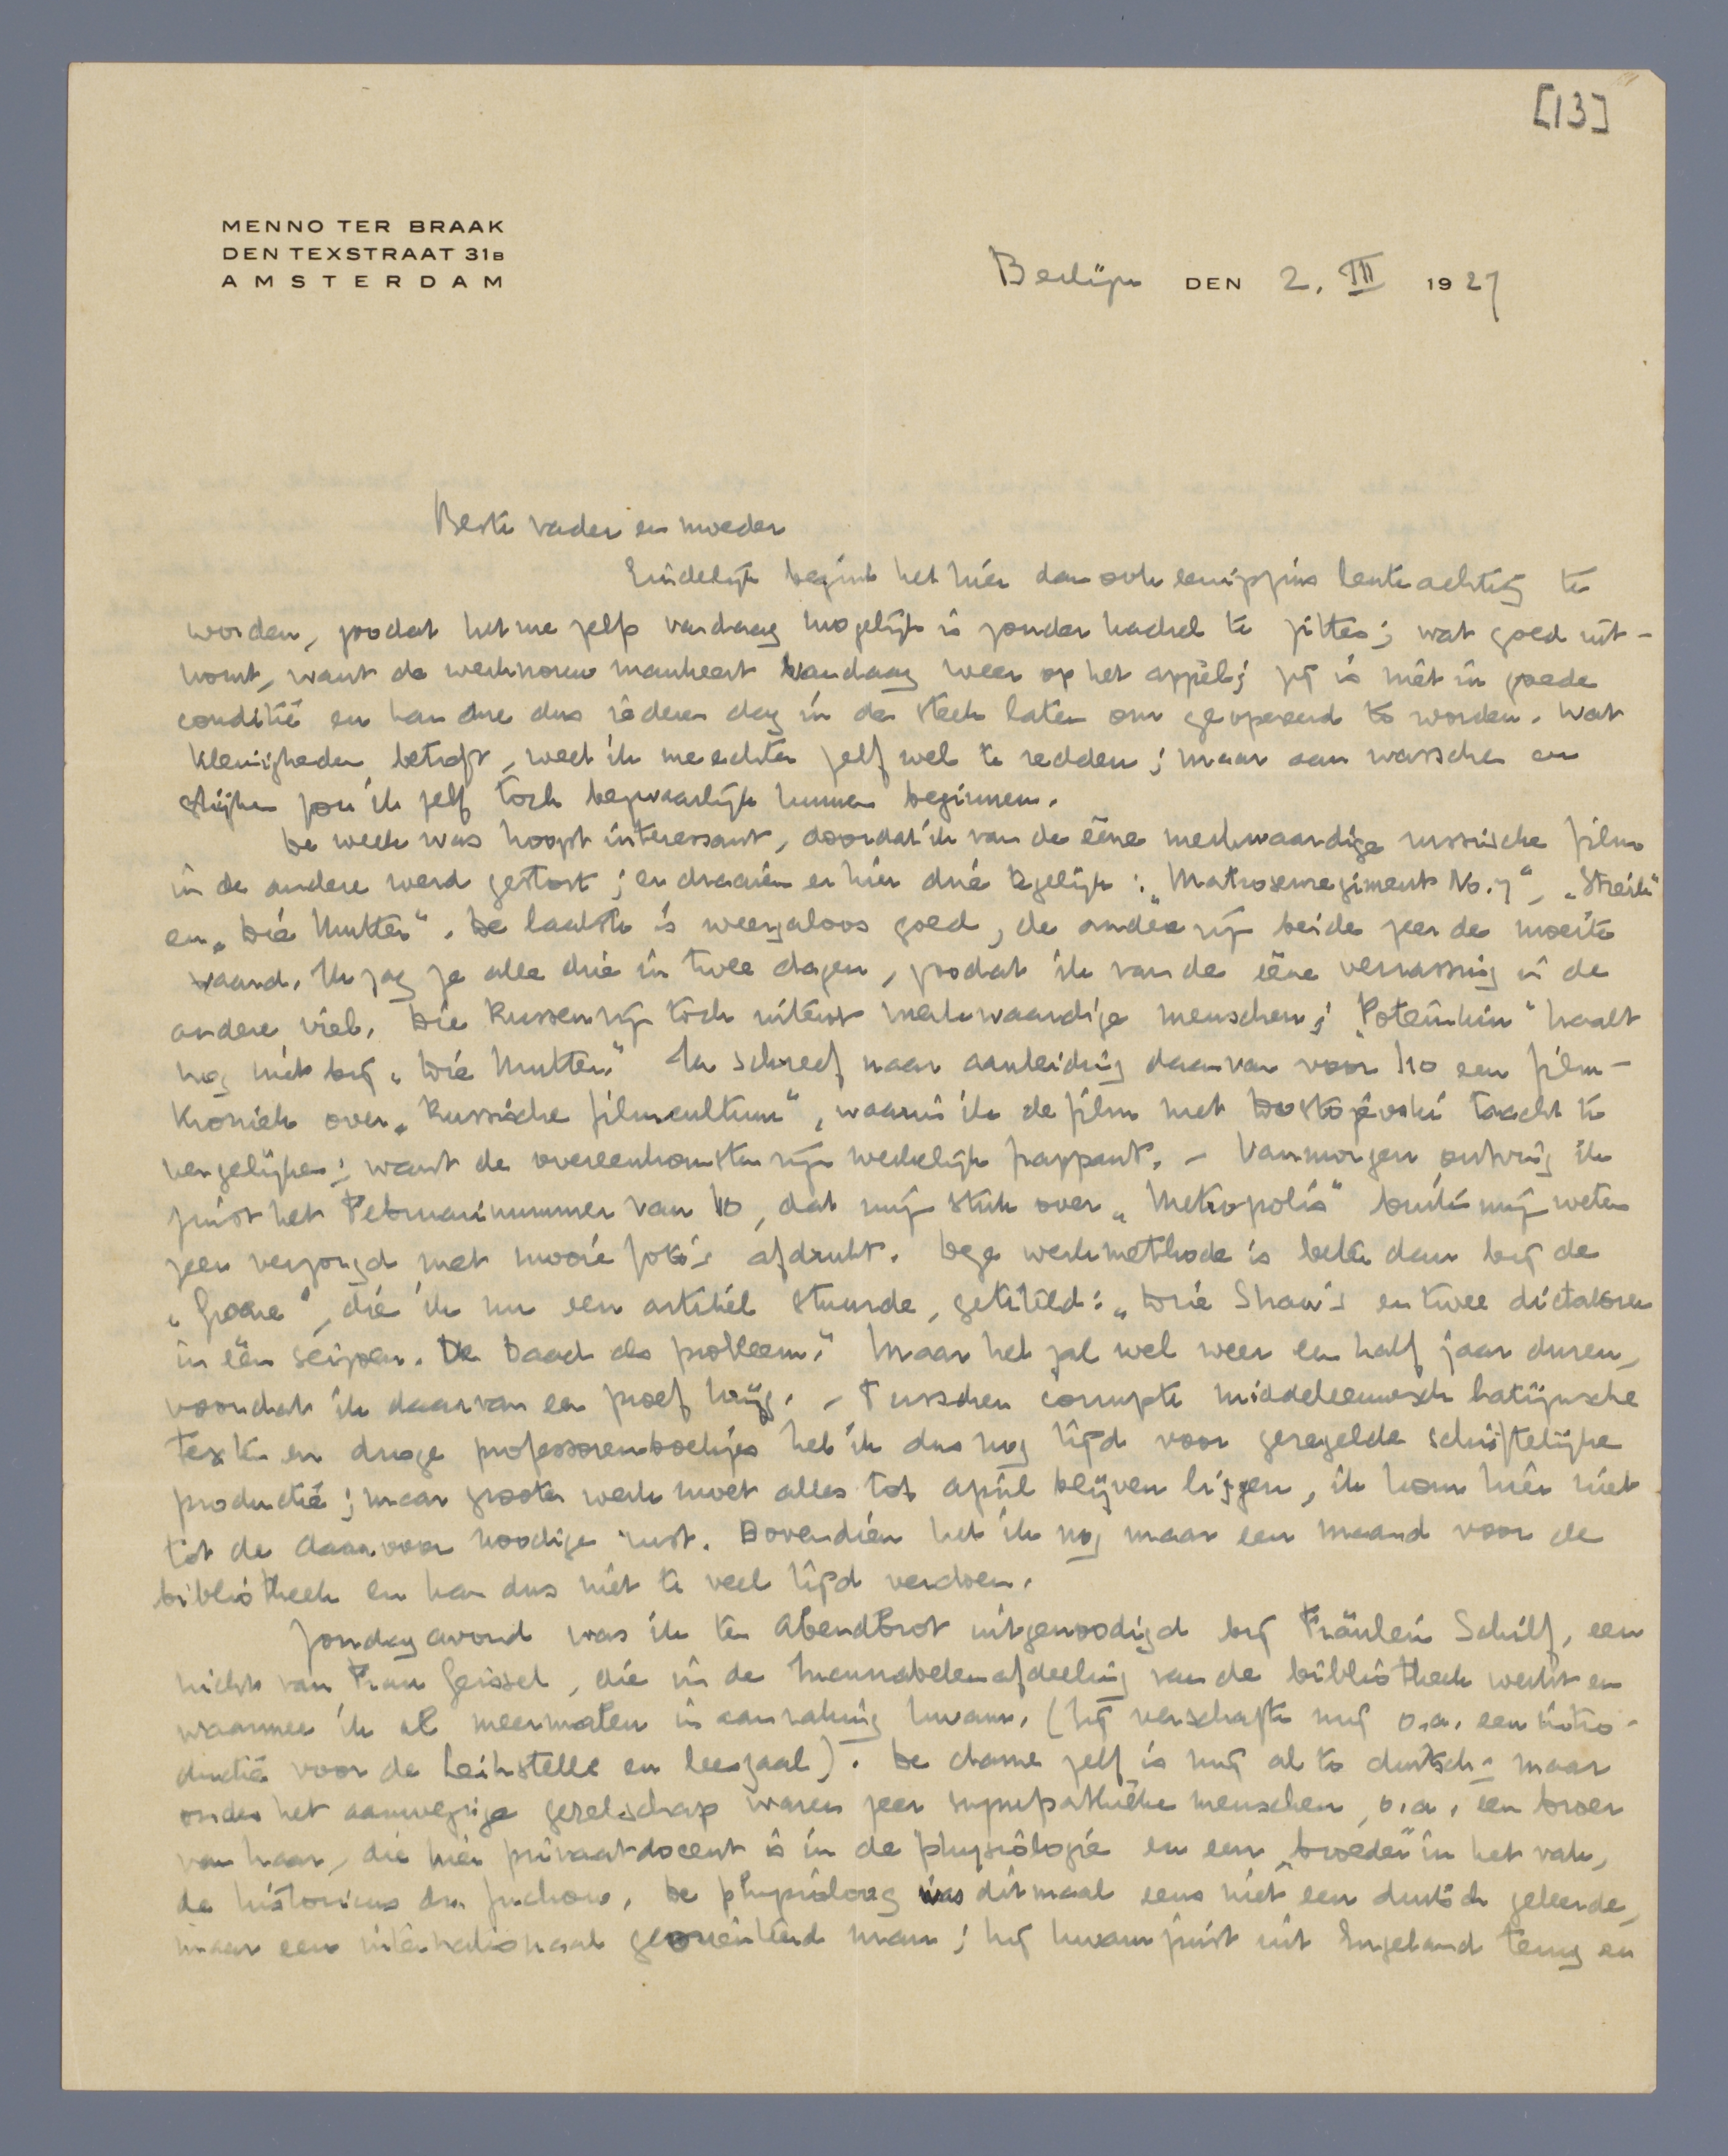 [13]
MENNO TER BRAAK
DEN TEXSTRAAT 31B
AMSTERDAM
Berlijn DEN 2. III 1927
Beste vader en moeder
Eindelijk begint het hier dan ook eenigszins lenteachtig te
worden, zoodat het me zelfs vandaag mogelijk is zonder kachel te zitten; wat goed uit-
komt, want de werkvrouw mankeert vandaag weer op het appèl; zij is niet in goede
conditie en kan me dus iederen dag in de steek laten om geopereerd te worden. Wat
kleinigheden betreft, weet ik me echter zelf wel te redden; maar aan wasschen en
strijken zou ik zelf toch bezwaarlijk kunnen beginnen.
De week was hoogst interessant, doordat ik van de ééne merkwaardige russische film
in de andere werd gestort; er draaien er hier drie tegelijk: „Matrosenregiment No. 7“, „Streik“
en „Die Mutter“. De laatste is weergaloos goed, de andere zijn beide zeer de moeite
waard. Ik zag ze alle drie in twee dagen, zoodat ik van de ééne verrassing in de
andere viel. Die Russen zijn toch uiterst merkwaardige menschen; „Potemkin“ haalt
nog niet bij „Die Mutter“. Ik schreef naar aanleiding daarvan voor i10 een film-
kroniek over „Russische filmcultuur“, waarin ik de film met Dostojevski tracht te
vergelijken; want de overeenkomsten zijn werkelijk frappant. – Vanmorgen ontving ik
juist het Februarinummer van i10, dat mijn stuk over „Metropolis“ buiten mijn weten
zeer verzorgd met mooie foto's afdrukt. Deze werkmethode is beter dan bij de
„Groene“, die ik nu een artikel stuurde, getiteld: „Drie Shaw's en twee dictatoren
in één seizoen. De Daad als probleem.“ Maar het zal wel weer een half jaar duren,
voordat ik daarvan een proef krijg. – Tusschen corrupte middeleeuwsch latijnsche
teksten en droge professorenboekjes heb ik dus nog tijd voor geregelde schriftelijke
productie; maar grooter werk moet alles tot april blijven liggen, ik kom hier niet
tot de daarvoor noodige rust. Bovendien heb ik nog maar een maand voor de
bibliotheek en kan dus niet te veel tijd verdoen.
Zondagavond was ik ten Abendbrot uitgenoodigd bij Fräulein Schilf, een
nicht van Frau Geissel, die in de afdeeling van de bibliotheek werkt en
waarmee ik al meermalen in aanraking kwam. (Zij verschafte mij o.a. een intro-
ductie voor de Leihstelle en leeszaal). De dame zelf is mij al te duitsch; maar
onder het aanwezige gezelschap waren zeer sympathieke menschen, o.a. een broer
van haar, die hier privaatdocent is in de physiologie en een „broeder“ in het vak,
de historicus dr. . De physioloog was ditmaal eens niet een duitsch geleerde,
maar een internationaal georiënteerd man; hij kwam juist uit Engeland terug en